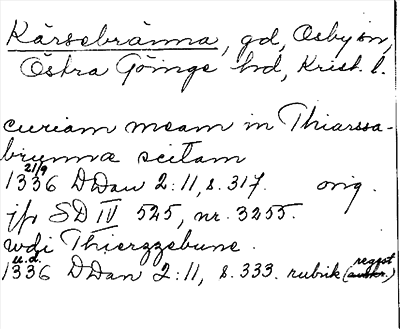 Kärsebränna, gd, Osby sn,
Östra Göinge hd, Krist. l.
curiam meam in Thiarssa-
brynnæ scitam
21/9
1336 DDan 2:11, s. 317. orig.
jfr SD IV 525, nr. 3255.
wdi Thierzzebune.
u.d. regest
1336 DDan 2:11, s. 333. rubrik (avskr.)